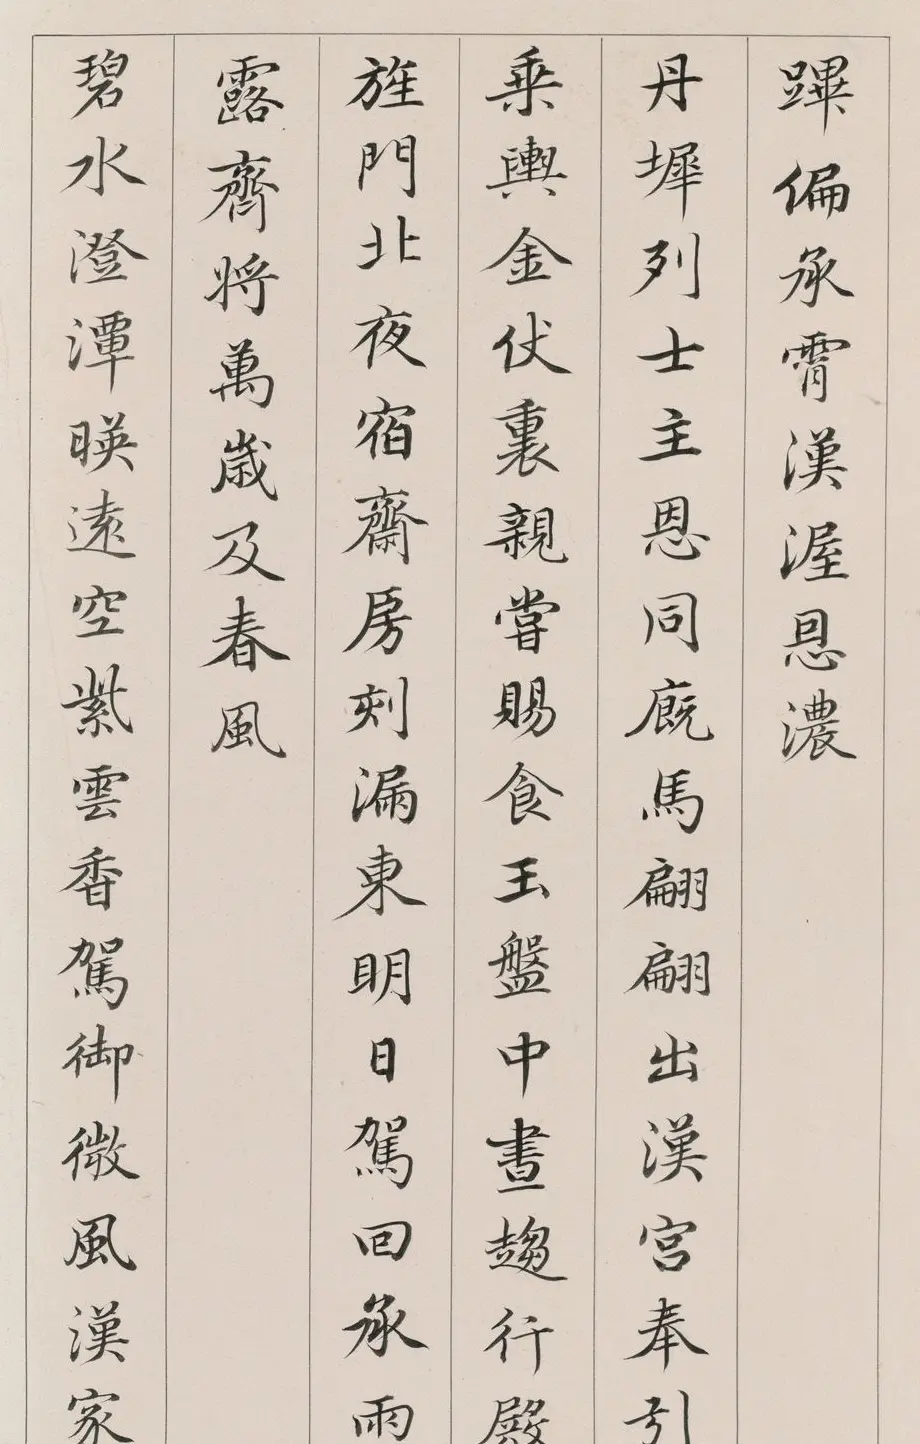 蹕偏承霄漢渥恩濃
丹墀列士主恩同廐馬翩翩出漢宮奉引
乗輿金伏裏親嘗賜食玉盤中晝趨行殿
旌門北夜宿齋房刻漏東明日駕回承雨
露齊將萬歲及春風
碧水澄潭暎遠空紫雲香駕御微風漢家